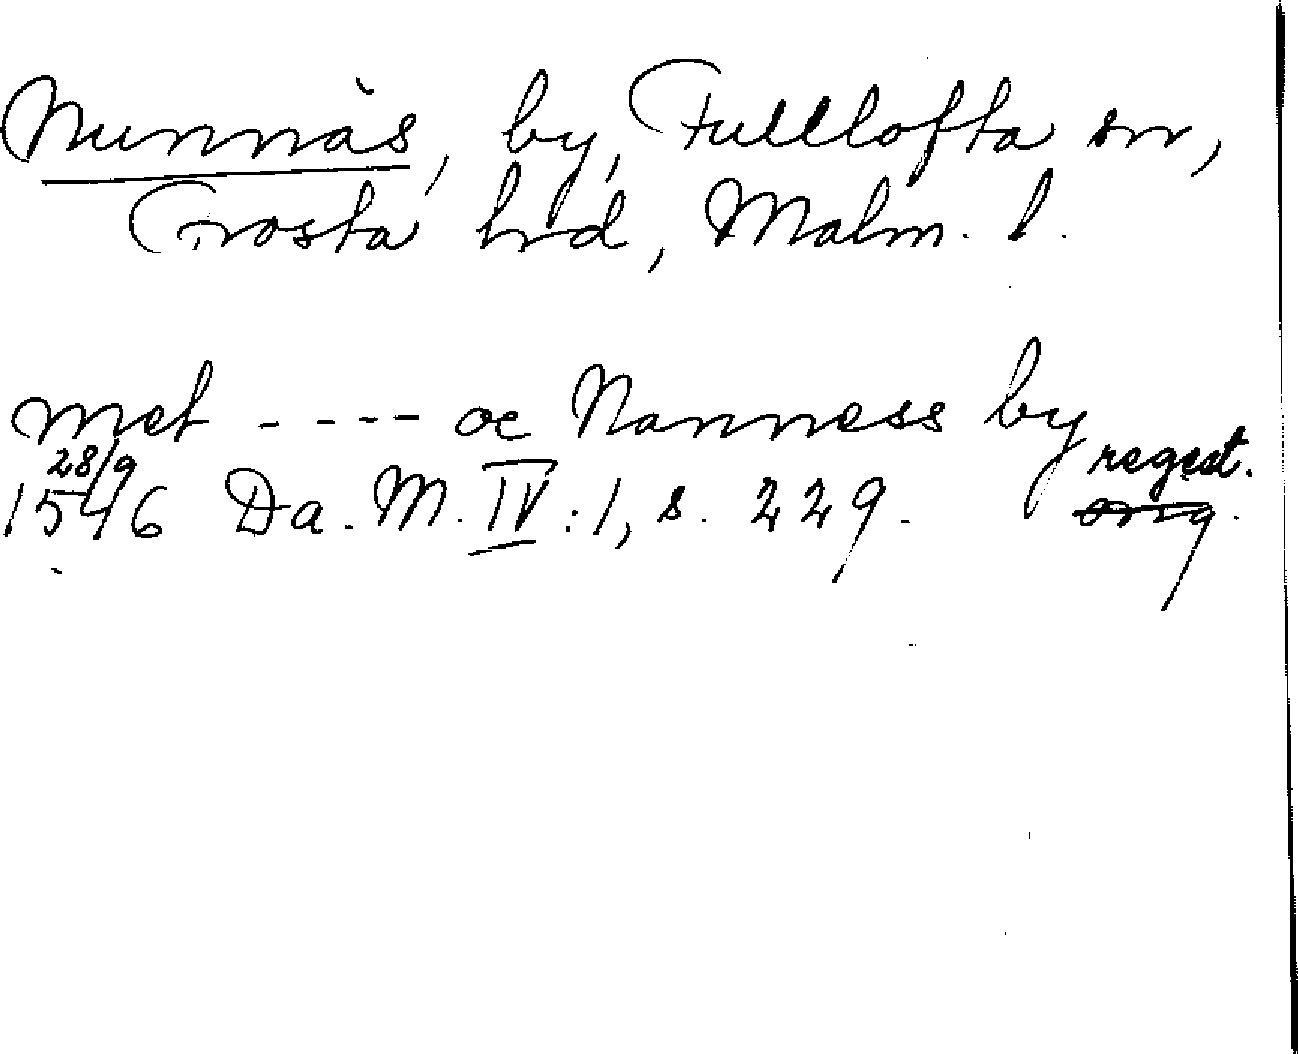 Nunnäs, by, Fulllofta sn,
Frosta hrd, Malm. l.
met ---- oc Nanness by
28/9 regest.
1546 Da. M. IV:1, s. 229. orig.